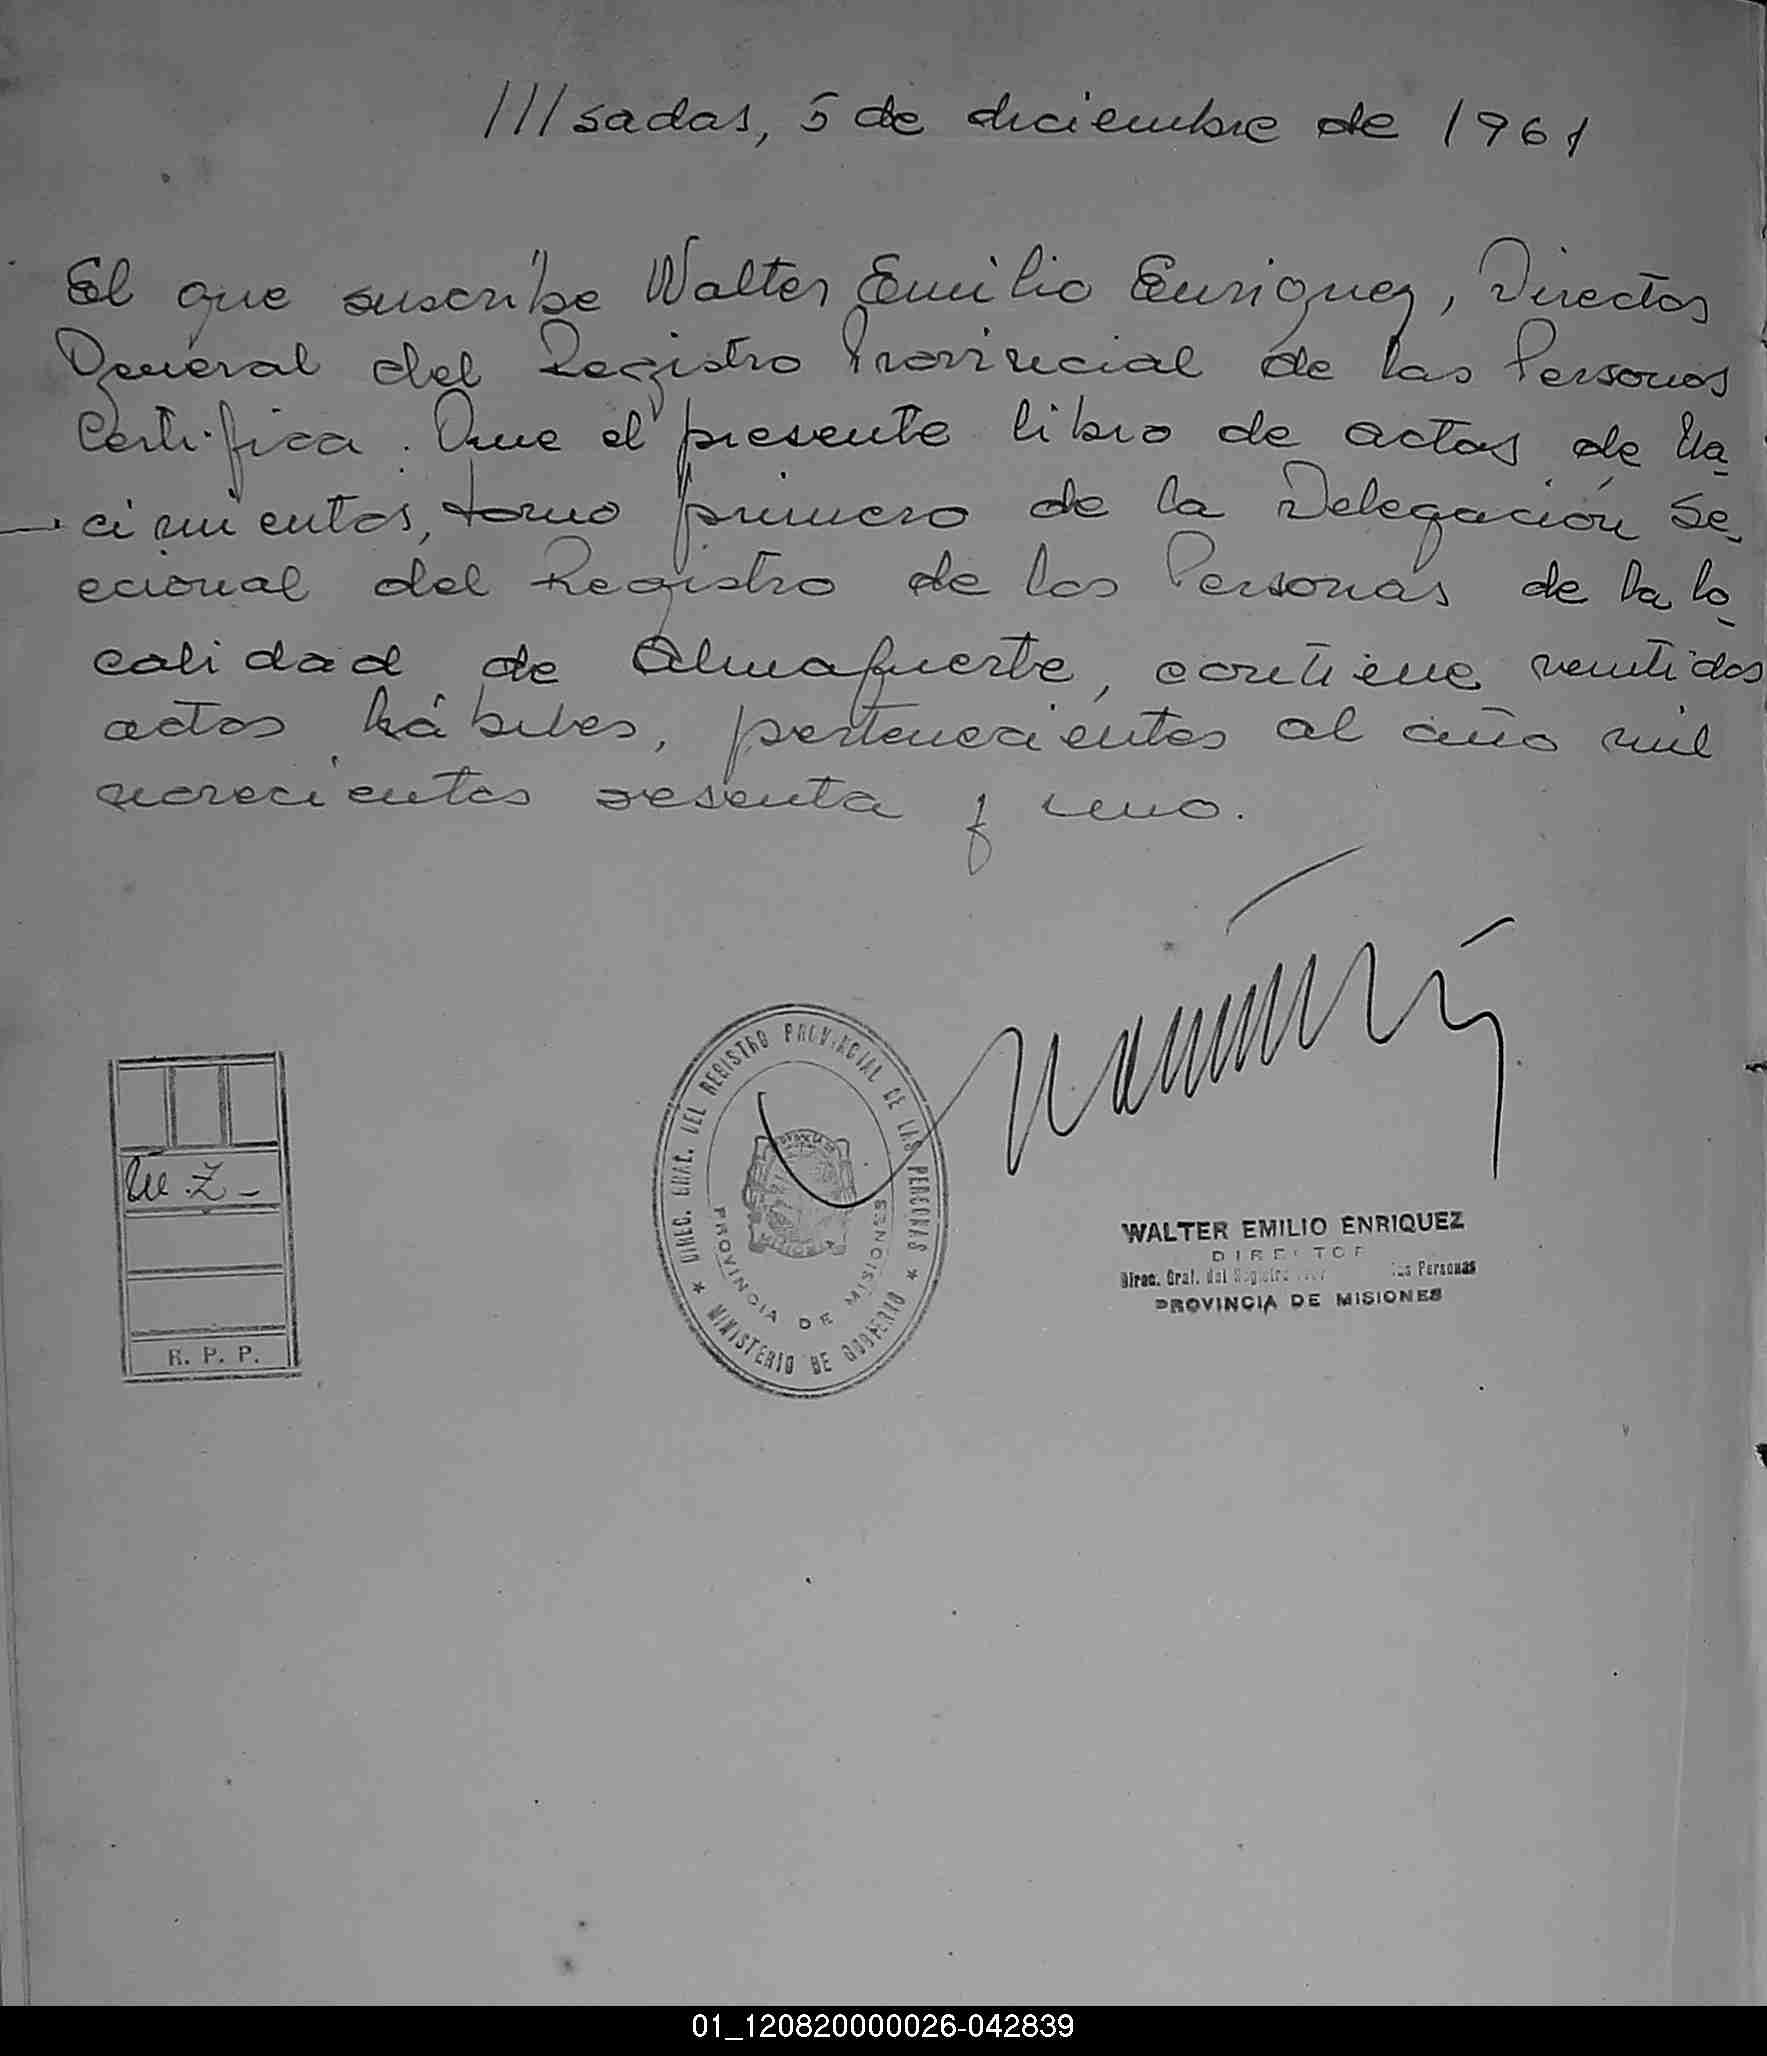 ///sadas, 5 de diciembre de 1961
El que suscribe Walter Emilio Enriquez, Director
General del Registro Provincial de las Personas
Certifica: Que el presente libro de actas de Na
cimientos, tomo primero de la Delegación Se
ccional del Registro de las Personas de la lo
calidad de Almafuerte, contiene ventidos
actas hábiles, pertenecientes al año mil
novecientos sesenta y uno.
DIREC. GRAL. DEL REGISTRO PROVINCIAL DE LAS PERSONAS
* MINISTERIO DE GOBIERNO *
PROVINCIA DE MISIONES
MISIONES
R. P. P.
WALTER EMILIO ENRIQUEZ
DIRECTOR
Direc. Gral. del Registro las Personas
PROVINCIA DE MISIONES
01_120820000026-042839